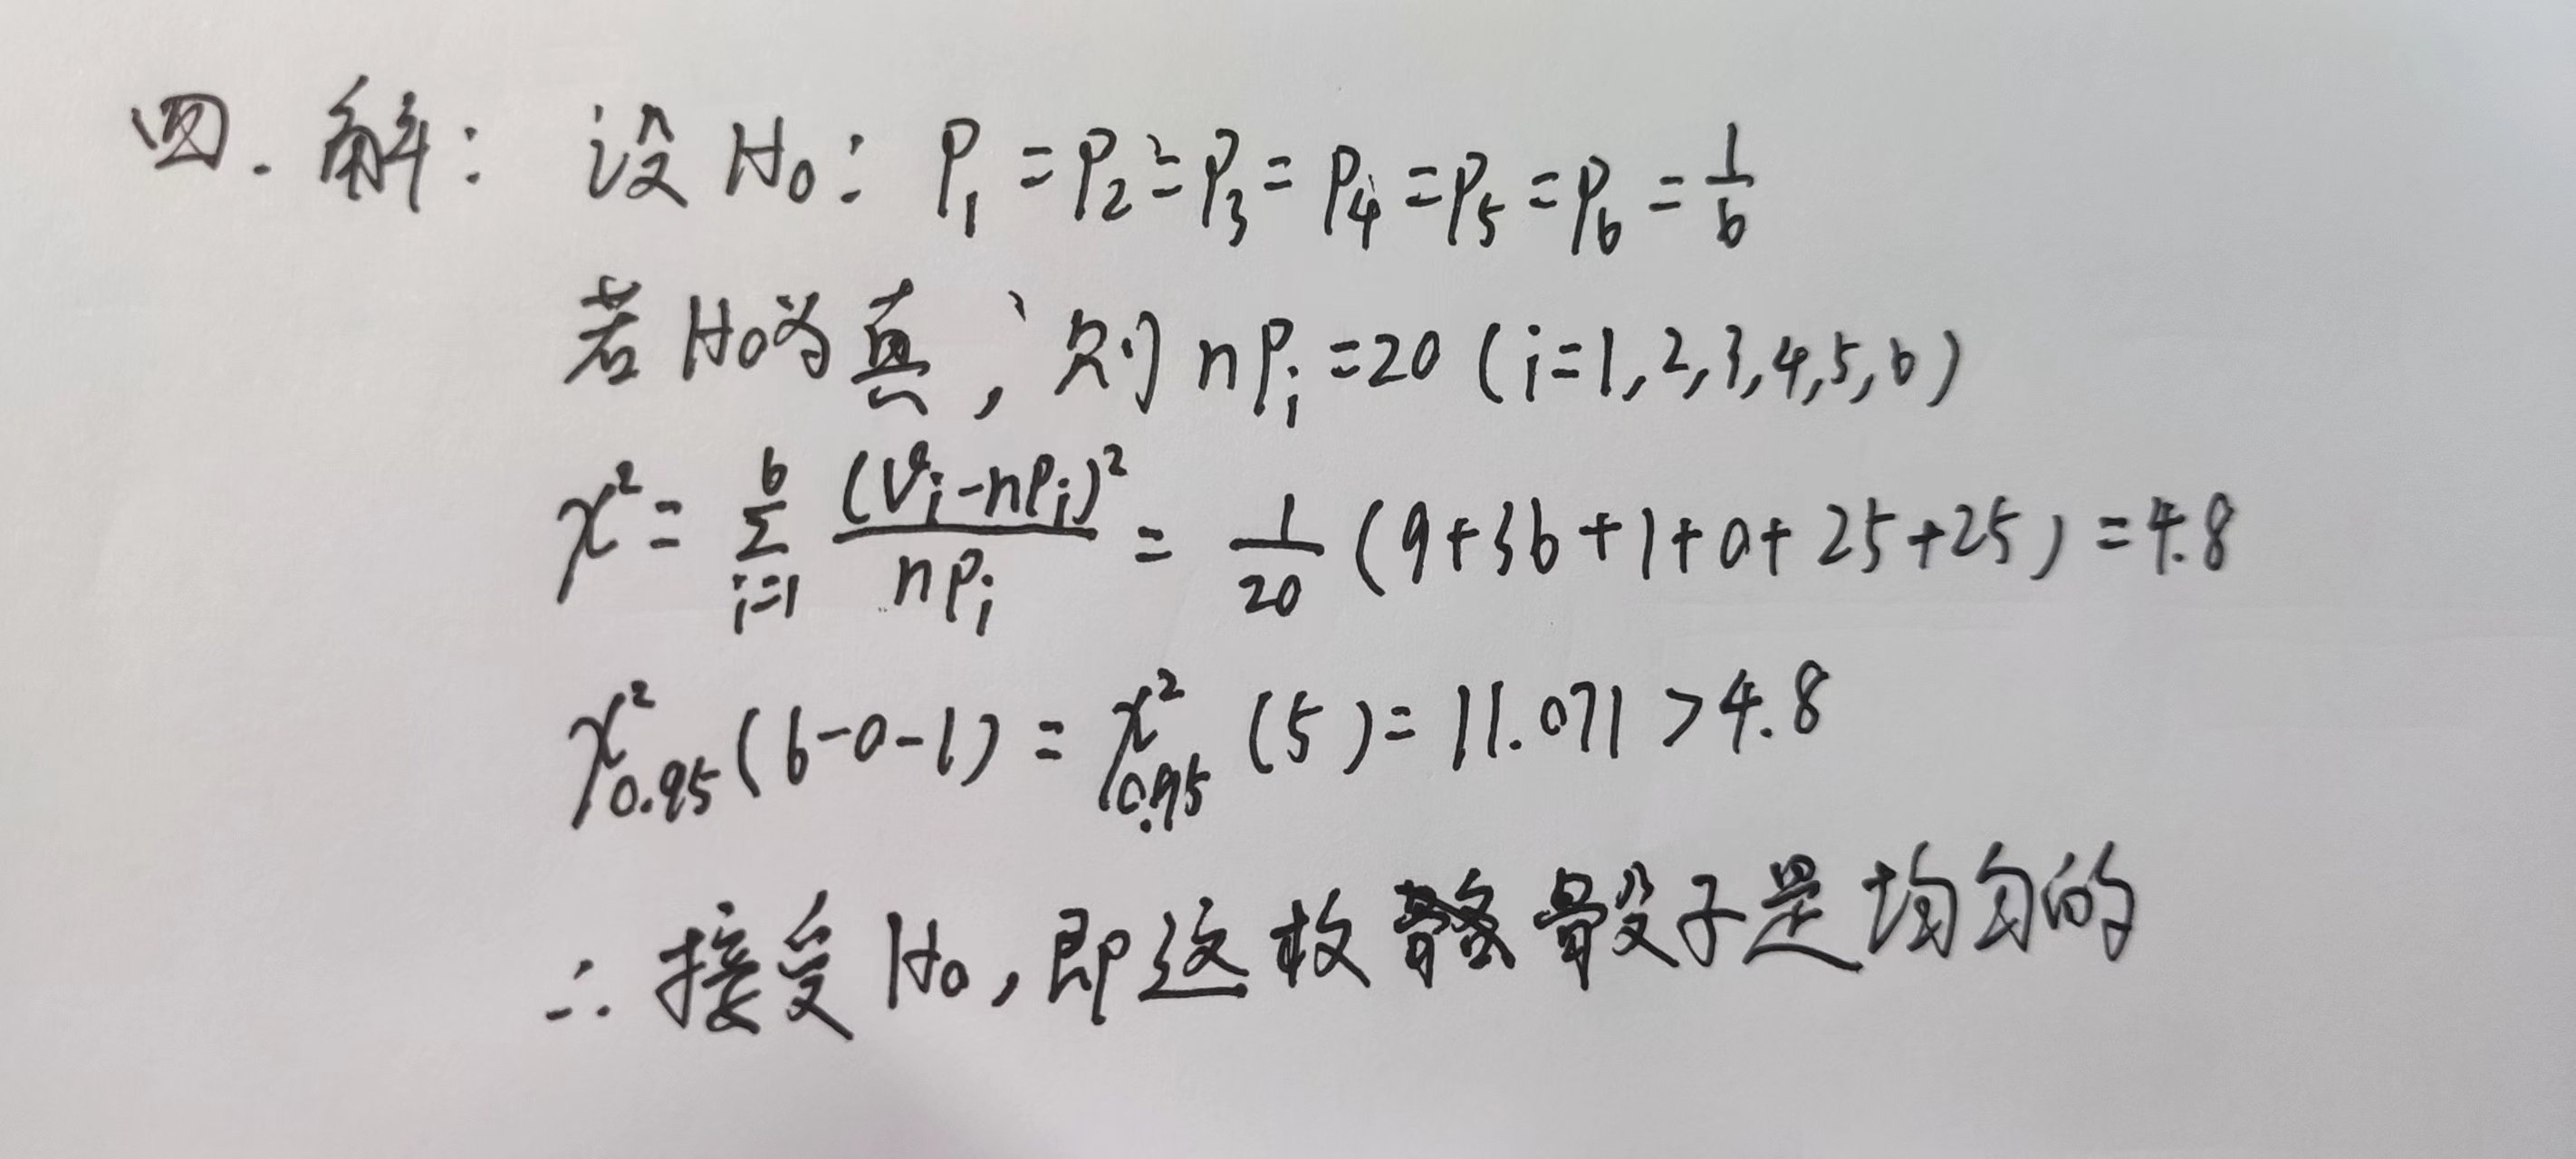 四. 解: 设 H₀: P₁=P₂=P₃=P₄=P₅=P₆=1/6
若H₀为真, 则 nPᵢ=20 (i=1,2,3,4,5,6)
χ²= Σᵢ₌₁⁶ (Vᵢ-nPᵢ)²/nPᵢ = 1/20 (9+36+1+0+25+25) = 4.8
χ²₀.₉₅(6-0-1) = χ²₀.₉₅(5) = 11.071 > 4.8
∴接受 H₀, 即这枚骰子是均匀的